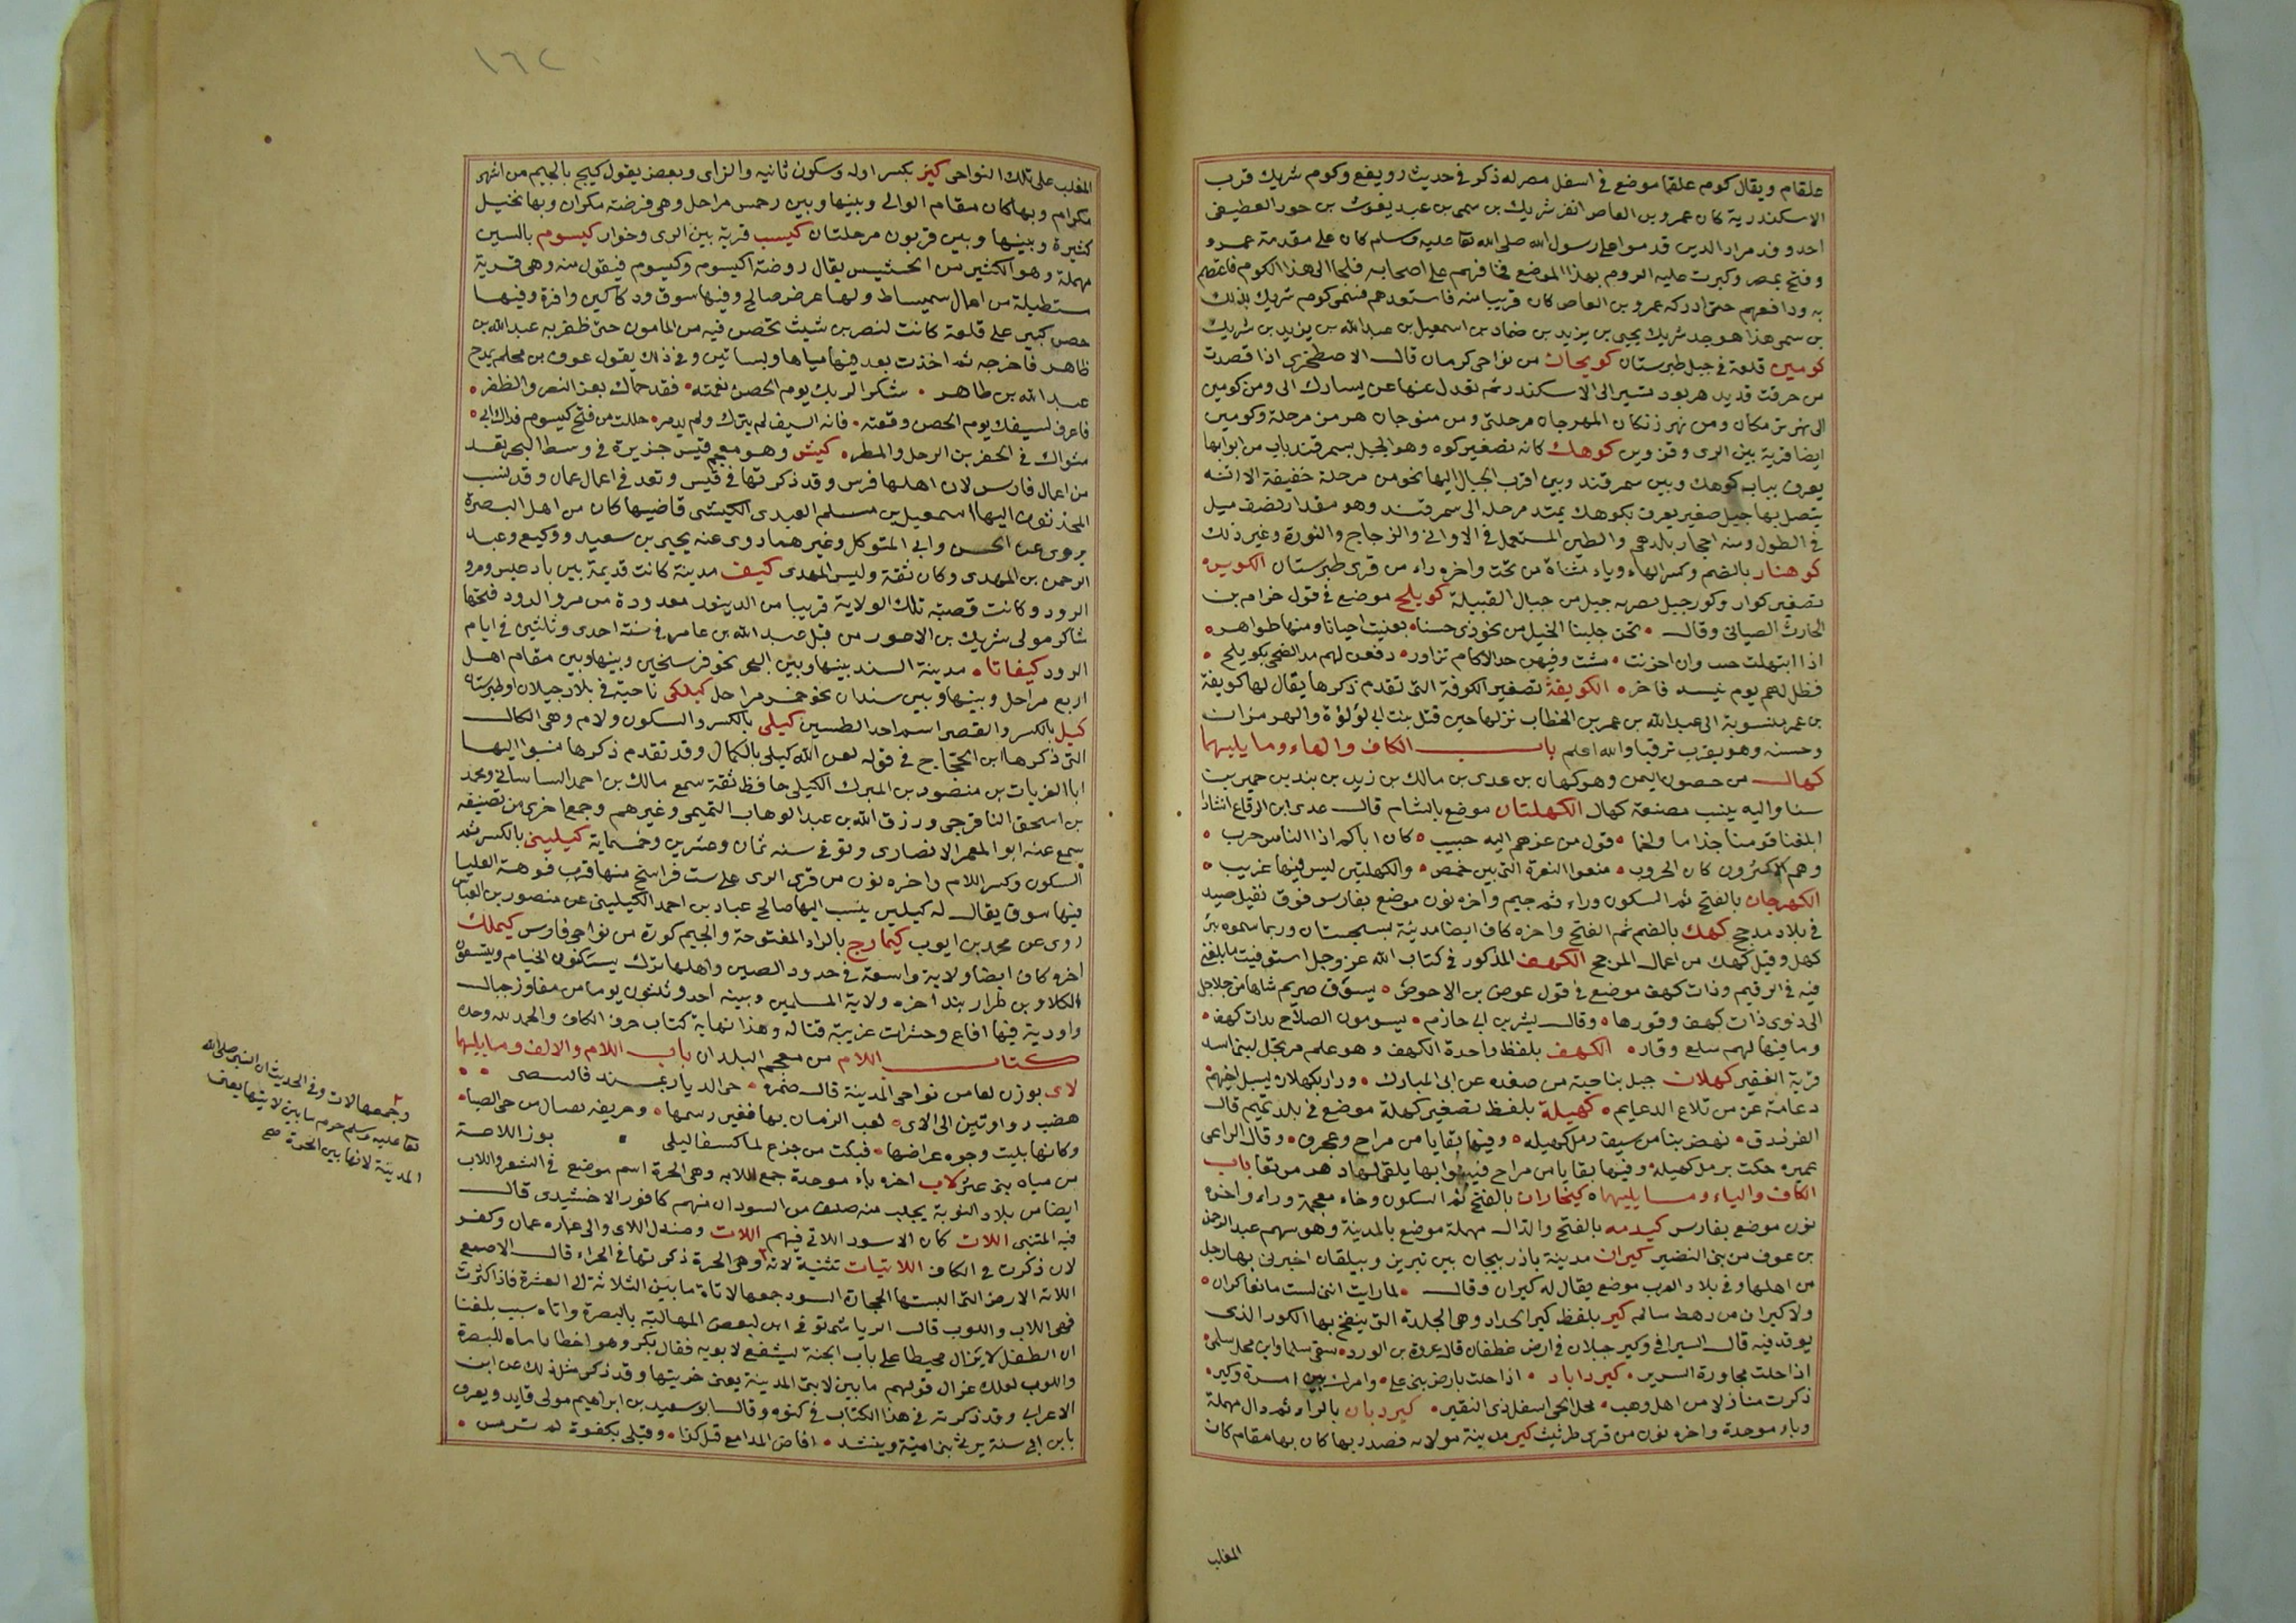 علقام ويقال كوم علقما موضع في اسفل مصر له ذكر في حديث رويفع وكوم شريك قرب
الاسكندرية كان عمرو بن العاص انفذ شريك بن سمى بن عبد يغوث بن حرز الغطيفى
احد وفد مراد الذين قدموا على رسول الله صلى الله تعا عليه وسلم كان على مقدمة عمرو
وفتح بمصر وكبرت عليه الروم بهذا الموضع فخافهم على اصحابه فلجا الى هذا الكوم فاعتصم
به ودافعهم حتى ادركه عمرو بن العاص كان قريبا منه فاستعدهم فسمى كوم شريك بذلك
بن سمى هذا هو جد شريك يحيى بن يزيد بن ضماد بن اسمعيل بن عبد الله بن يزيد بن شريك
كومين قلعة في جبل طبرستان كويجان من نواحى كرمان قال الاصطخرى اذا قصدت
من جرفت تريد هرمز تسير الى الاسكندر ثم تعدل عنها عن يسارك الى ومن كومين
الى نهر زنكان ومن نهر زنكان المهرجان مرحلتى ومن منوجان هرمز مرحلة وكومين
ايضا قرية بين الرى وقزوين كوهك كانه تصغير كوه وهو الجبل بسمرقند باب من ابوابها
يعرف بباب كوهك وبين سمرقند وبين اقرب الجبال اليها نحو من مرحلة خفيفة الا انه
يتصل بها جبل صغير يعرف بكوهك يمتد مرحله الى سمرقند وهو مقدار نصف ميل
في الطول ومنه احجار بلدهم والطين المستعمل في الاوانى والزجاج والنورة وغير ذلك
كوهنار بالضم وكسر الهاء وياء مثناة من تحت واخره راء من قرى طبرستان الكوير
تصغير كوار وكور جبل بضربه جبل من جبال القبيلة كويلح موضع في قول خزام بن
الحارث الضبابى وقال • نحن جلبنا الخيل من نحو ذى حسا • تغيب احيانا ومنها ظواهر •
اذا ابتهلت خبب وان احزنت • مشت وفيهن حد الاكام تزاور • دفعن لهم مد الضحى بكويلح •
فظل لهم يوم بنسه فاخر • الكويفة تصغير الكوفة التى تقدم ذكرها يقال لها كويفة
بن عمر منسوبة الى عبد الله بن عمر بن الخطاب نزلها حين قتل بنت ابى لؤلؤة والهرمزان
وحسنه وهو بقرب ترقبا والله اعلم باب الكاف والهاء وما يليهما
كهال من حصون اليمن وهو كهال بن عدى بن مالك بن زيد بن بند بن حمير بن
سبا واليه ينسب مصنعة كهال الكهلتان موضع بالشام قال عدى بن الرقاع انشادا
ابلغنا قومنا جذاما ولخما • قول من عزهم اليه حبيب • كان اباكم اذا الناس حرب •
وهم الاكثرون كان الحروب • منعوا الثغرة التى بين حمص • والكهلتين ليس فيها غريب •
الكهرجان بالفتح ثم السكون وراء ثم جيم واخره نون موضع بفارس فوق نقيل صيد
في بلاد مدحج كهك بالضم ثم الفتح واخره كاف ايضا مدينة بسجستان وربما سموه بئر
كهل وقيل كهك من اعمال الرخج الكهف المذكور في كتاب الله عز وجل استوفيت ما بلغنى
فيه في الرقيم وذات كهف موضع في قول عوف بن الاحوص • يسوق صريم شاها من جلاجل
الى ذوى ذات كهف وقورها • وقال بشر بن ابى حازم • يسومون الصلاح بذات كهف •
وما فيها لهم سلع وقار • الكهف بلفظ واحدة الكهف وهو علم مرتجل لبنى اسد
قرية الفقير كهلان جبل بناحية من صعده عن ابى المبارك • ودار بكهلان لسبل اخيهم
دعامة عز من تلاع الدعايم • كهيلة بلفظ تصغير كهلة موضع في بلاد تميم قال
الفرزدق • نهض بنا من سيف رمل كهيله • وفيها بقايا من مراح وعجرف • وقال الراعى
عميره حكت برمل كهيلة وفيها بقايا من مراح فبينوا ابها يلقى لها دهر مرتعا باب
الكاف والياء وما يليهما • كيخاران بالفتح ثم السكون وخاء معجمة وراء واخره
نون موضع بفارس كيدمه بالفتح والدال مهملة موضع بالمدينة وهو سهم عبد الرحمن
بن عوف من بنى النضير كيران مدينة باذربيجان بين تبريز وبيلقان اخبرنى بها رجل
من اهلها وفي بلاد العرب موضع يقال له كيران وقال • لما رايت اننى لست مانعا كران •
ولا كيران من رهط سالم كير بلفظ كير الحداد وهى الجلدة التى ينفخ بها الكور الذى
يوقد فيه قال السيرافى وكير جبلان في ارض غطفان قال عروة بن الورد • سقى سلما واين محل سلمى •
اذا حلت مجاورة السرير • كيرداباد • اذا حلت بارض بنى على • وامرك بين امرة وكير •
ذكرت منازلا من اهل وهب • محل الحى اسفل ذى النقير • كيردبان بالراء ثم دال مهملة
وباء موحدة واخره نون من قرى طرثيث كير مدينة مولان فصدر بها كان بها مقام كان
المغلب
١٦٢
المغلب على تلك النواحى كيز بكسر اوله وسكون ثانيه والزاى وبعض يقول كيج بالجيم من اشهر
مكرام وبها كان مقام الوالى وبينها وبين خمس مراحل وهى فرضة مكران وبها نخيل
كثيرة وبينها وبين قربون مرحلتان كيسب قرية بين الرى وخوار كيسوم بالسين
مهملة وهو الكثير من الحشيش يقال روضة اكيسوم وكيسوم فيقول منه وهى قرية
مستطيلة من اعمال سميساط ولها عرض صالح وفيها سوق ودكاكين وافرة وفيها
حصن كبير على قلعة كانت لنصر بن شيث تحصن فيه من المامون حتى ظفر به عبد الله بن
طاهر فاخرجه ثم اخذت بعد فيها مياها وبساتين وفى ذلك يقول عوف بن محلم يمدح
عبد الله بن طاهر • شكرا لربك يوم الحصن نعمته • فقد حماك بعز النصر والظفر •
فاعرف لسيفك يوم الحصن وقعته • فانه السيف لم يترك ولم يدمر • حللت من فتح كيسوم فداك ابى •
مثواك في الحفر بين الرحل والمطر • كيش وهو معجم قيس جزيرة في وسط البحر تعد
من اعمال فارس لان اهلها فرس وقد ذكرتها في قيس وتعد في اعمال عمان وقد نسب
المحدثون اليها اسمعيل بن مسلم العبدى الكيشى قاضيها كان من اهل البصرة
يروى عن الحسن وابى المتوكل وغيرهما روى عنه يحيى بن سعيد ووكيع وعبد
الرحمن بن المهدى وكان ثقة وليس المهدى كيف مدينة كانت قديمة بين بادغيس ومرو
الرود وكانت قصبة تلك الولاية قريبا من الدينور معدودة من مرو الرود فتحها
شاكر مولى شريك بن الاعور من قبل عبد الله بن عامر في سنة احدى وثلثين في ايام
الرود كيفاتا • مدينة السند بينها وبين البحر نحو فرسخين وبينها وبين مقام اهل
اربع مراحل وبينها وبين سندان نحو خمس مراحل كيلكى ناحية في بلاد جيلان او طبرستان
كيل بالكسر والقصر اسم احد الطسين كيلى بالكسر والسكون ولام وهى الكال
التى ذكرها ابن الحجاج في قوله لعن الله كيلى بالكمال وقد تقدم ذكرها نسبوا اليها
ابا العزيات بن منصور بن المبرك الكيلى حافظ ثقة سمع مالك بن احمد الساساتى ومحمد
بن اسحق النافرجى ورزق الله بن عبد الوهاب التميمى وغيرهم وجمع اخرى من تصنيفه
سمع عنه ابو المعمر الانصارى وتوفى سنه ثمان وعشرين وخمسماية كيلينى بالكسر ثم
السكون وكسر اللام واخره نون من قرى الرى على ست فراسخ منها قرب قوهة العليا
فيها سوق يقال له كيلين ينسب اليها صالح عباد بن احمد الكيلينى عن منصور بن العباس
روى عن محمد بن ايوب كيمارج بالراء المفتوحة والجيم كورة من نواحى فارس كيملك
اخره كاف ايضا ولاية واسعة في حدود الصين واهلها ترك يسكنون الخيام ويتبعون
الكلاو بن طرار بند اخره ولاية المسلمين وبينه احد وثلثون يوما من مفاوز جبال
واودية فيها افاع وحشرات غريبة قتاله وهذا نهاية كتاب حرف الكاف والحمد لله وحده
كتاب اللام من معجم البلدان باب اللام والالف وما يليهما
لاى بوزن لعا من نواحى المدينة قال ضمره • حى الديار بمسند فالسمى • •
هضب رواوتين الى الاى • لعب الزمان بها فغير رسمها • وخريفه نصال من حى الصبا •
وكانها بليت وجوه عراضها • فبكت من جزع لما كسفا ليلى • بوز اللاحة
من مياه بنى عبس لاب اخره باء موحدة جمع اللابه وهى الحرة اسم موضع في الشعر واللاب
ايضا من بلاد النوبة يجلب منه صنف من السودان منهم كافور الاخشيدى قال
فيه المتنبى اللات كان الاسود اللاتى فيهم اللات وصندل اللاى والى عماره عمان وكفر
لان ذكرت في الكاف اللاتيات تثنية لابه وهى الحرة ذكرتها في الحراء قال الاصمعى
اللابة الارض التى البستها الحجارة السود جمعها لابات ما بين الثلاثة الى العشرة فاذا كثرت
فهى اللاب واللوب قال الرياشى توفى ابن لبعض المهالبة بالبصرة واتاه سبب بلغنا
ان الطفل لا يزال محيطا على باب الجنة ليشفع لابويه فقال بكر وهو اخطا ياماه للبصرة
واللوب لعلك غزال قولهم ما بين لابتى المدينة يعنى حرتيها وقد ذكر مثل ذلك عن ابن
الاعرابى وقد ذكرته في هذا الكتاب في كنوه وقال ابو سعيد بن ابراهيم مولى قايد ويعرف
بابن ابى سنة يرثى بنى امية وينشد • افاض المدامع قتل كذا • وقتلى بكفوة لم ترمس •
وجمعها لابات وفى الحديث ان النبى صلى الله
تعا عليه وسلم حرم ما بين لابتيها يعنى
المدينة لانها بين الحرة صح